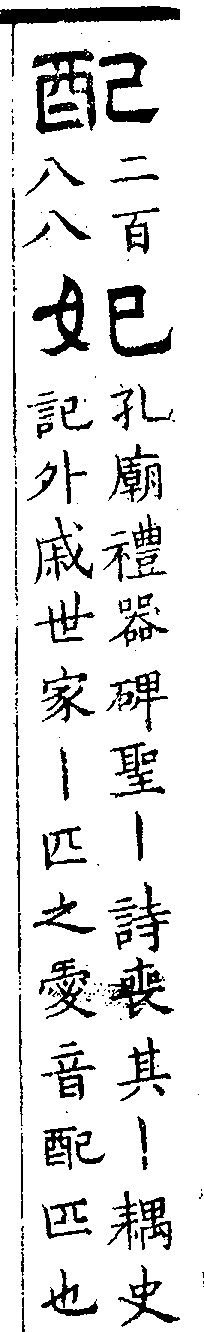 配
二百
八八
妃
孔廟禮器碑聖丨詩喪其丨耦史
記外戚世家丨匹之愛音配匹也